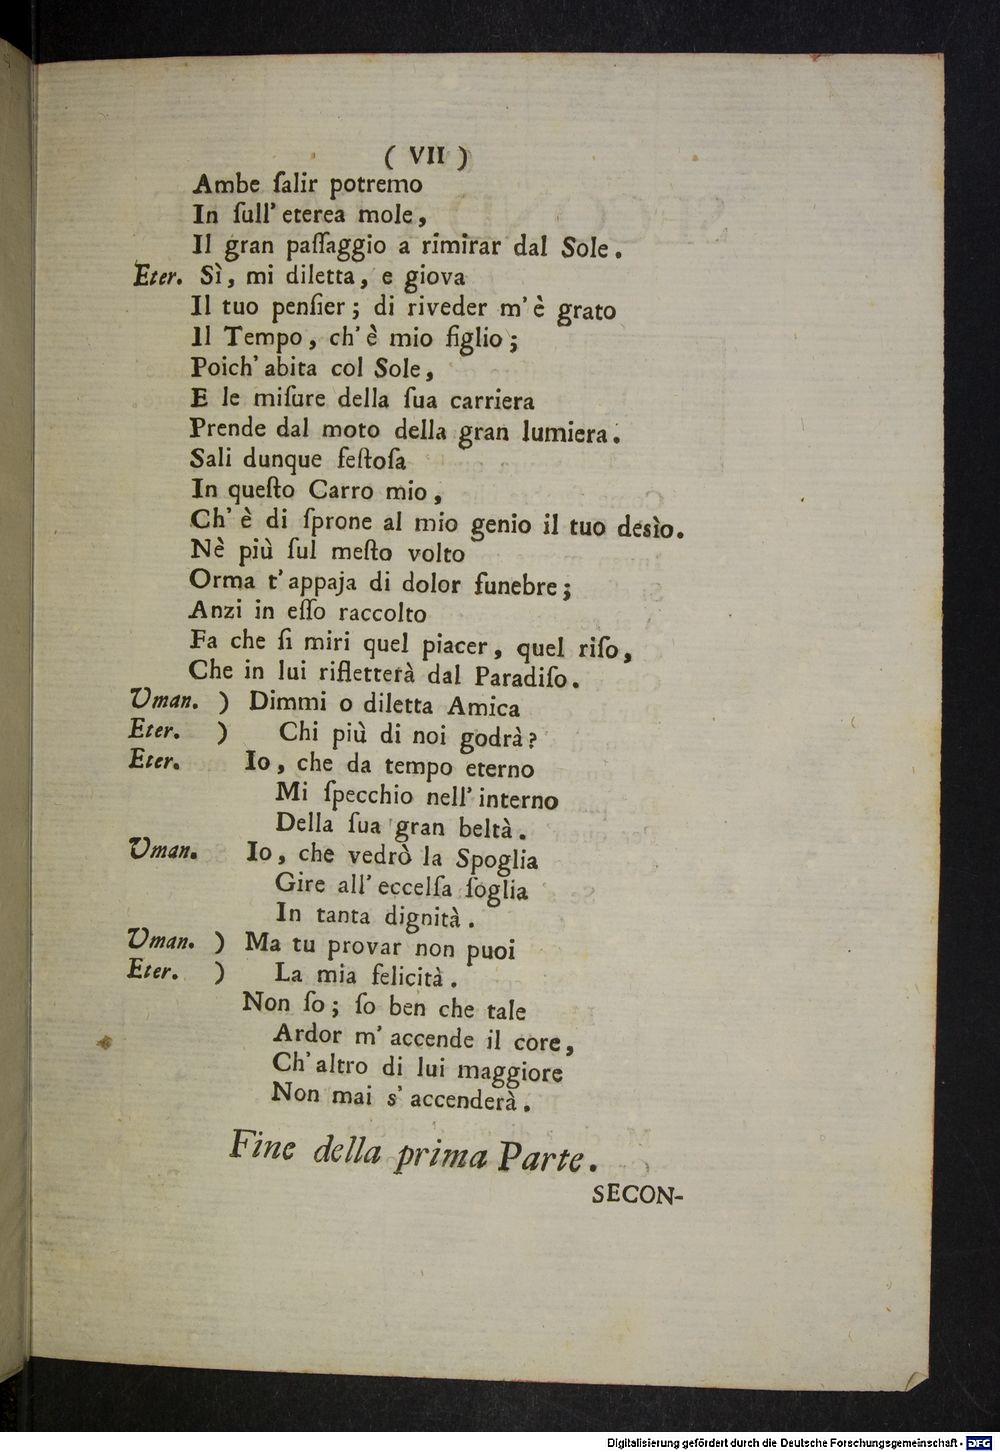 ( VII )
Ambe ſalir potremo
In ſull' eterea mole,
Il gran paſſaggio a rimirar dal Sole.
Eter. Sì, mi diletta, e giova
Il tuo penſier; di riveder m' è grato
Il Tempo, ch' è mio figlio;
Poich' abita col Sole,
E le miſure della ſua carriera
Prende dal moto della gran lumiera.
Sali dunque feſtoſa
In queſto Carro mio,
Ch' è di ſprone al mio genio il tuo desìo.
Nè più ſul meſto volto
Orma t' appaja di dolor funebre;
Anzi in eſſo raccolto
Fa che ſi miri quel piacer, quel riſo,
Che in lui rifletterà dal Paradiſo.
Uman. ) Dimmi o diletta Amica
Eter. ) Chi più di noi godrà?
Eter. Io, che da tempo eterno
Mi ſpecchio nell' interno
Della ſua gran beltà.
Uman. Io, che vedrò la Spoglia
Gire all' eccelſa ſoglia
In tanta dignità.
Uman. ) Ma tu provar non puoi
Eter. ) La mia felicità.
Non ſo; ſo ben che tale
Ardor m' accende il core,
Ch' altro di lui maggiore
Non mai s' accenderà.
Fine della prima Parte.
SECON-
Digitalisierung gefördert durch die Deutsche Forschungsgemeinschaft - DFG